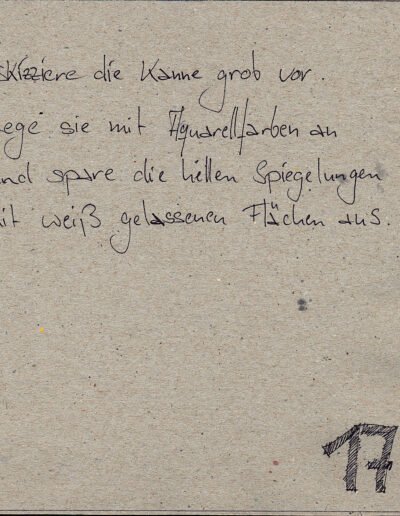 skizziere die Kanne grob vor.
ege sie mit Aquarellfarben an
nd spare die hellen Spiegelungen
it weiß gelassenen Flächen aus.
17